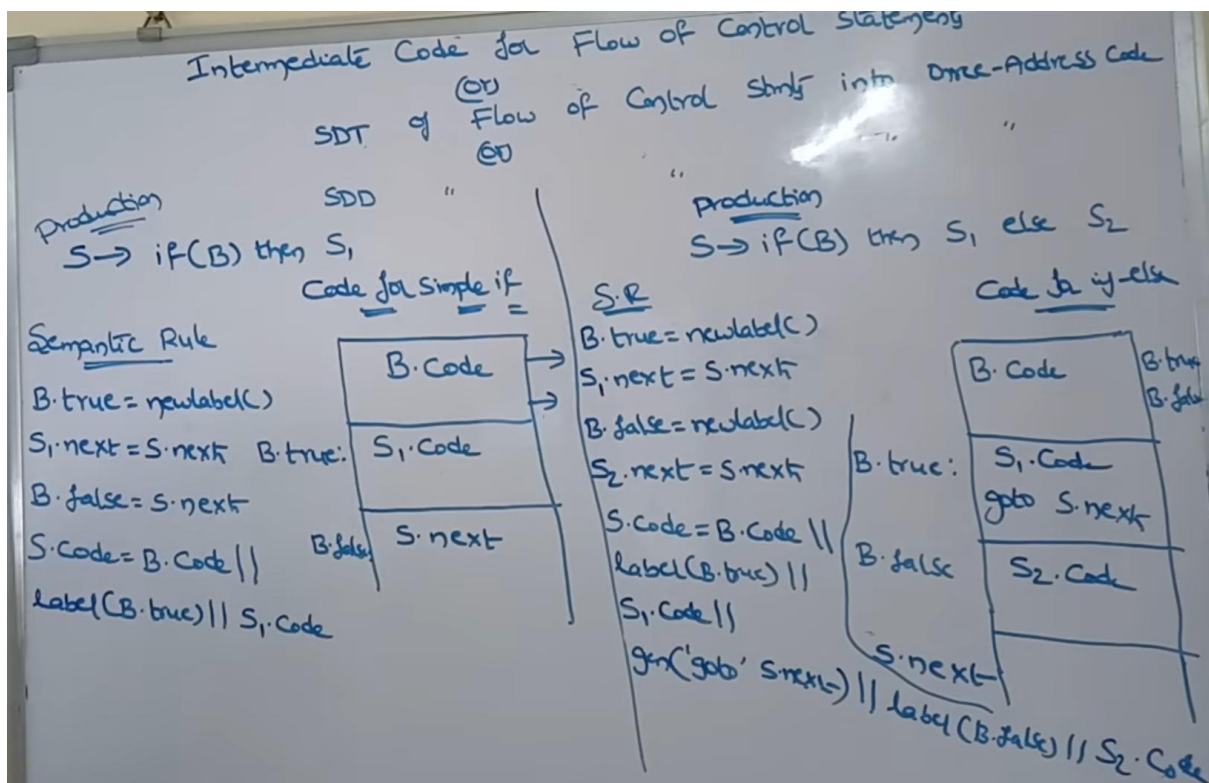 Intermediate Code for Flow of Control Statements
(or)
SDT of Flow of Control Stmts into Three-Address Code
(or)
SDD " " " "
Production
S→ if(B) then S₁
Code for Simple if
Semantic Rule
B.true=newlabel()
S₁.next=S.next
B.false=S.next
S.Code=B.Code||
label(B.true)|| S₁.Code
B.Code
B.true: S₁.Code
B.false S.next
Production
S→ if(B) then S₁ else S₂
Code for if-else
S.R
B.true=newlabel()
S₁.next=S.next
B.false=newlabel()
S₂.next=S.next
S.Code=B.Code||
label(B.true)||
S₁.Code||
gen('goto' S.next)|| label(B.false)|| S₂.Code
B.Code B.true
B.false
B.true: S₁.Code
goto S.next
B.false S₂.Code
S.next